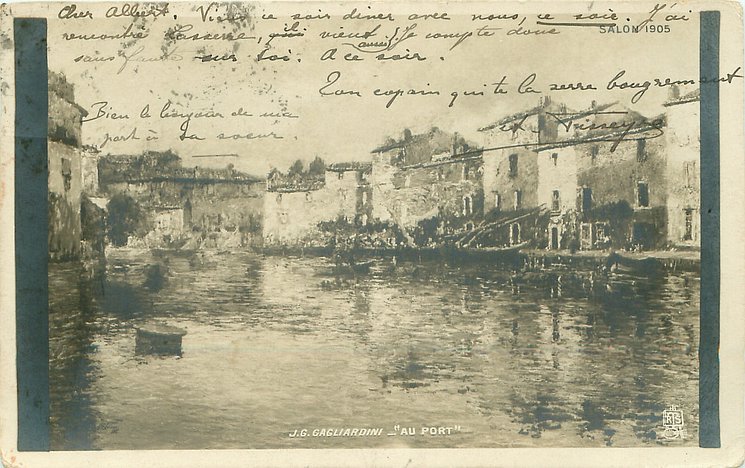 Cher Albert. Viens ce soir diner avec nous, ce soir. J'ai
SALON 1905
rencontré Lasserre, qu'il vient aussi. Je compte donc
sans faute sur toi. A ce soir.
Ton copain qui te la serre bougrement
Bien le bonjour de ma
part à ta soeur
J.G. GAGLIARDINI _ "AU PORT"